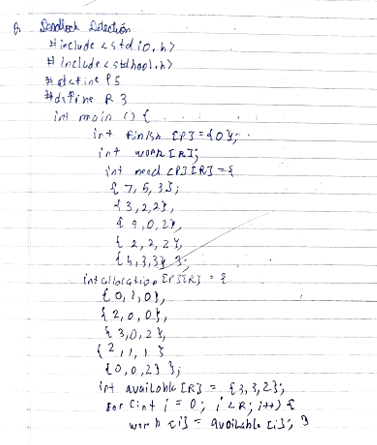 Q. Deadlock Detection
#include <stdio.h>
#include <stdbool.h>
#define P 5
#define R 3
int main () {
int finish [P] = {0};
int work [R];
int need [P][R] = {
{ 7, 5, 3};
{3, 2, 2},
{ 9, 0, 2},
{ 2, 2, 2},
{4, 3, 3} };
int allocation [P][R] = {
{ 0, 1, 0},
{ 2, 0, 0},
{ 3, 0, 2},
{ 2, 1, 1 }
{0, 0, 2} };
int available [R] = {3, 3, 2};
for (int i = 0; i < R; i++) {
work [i] = available [i]; }